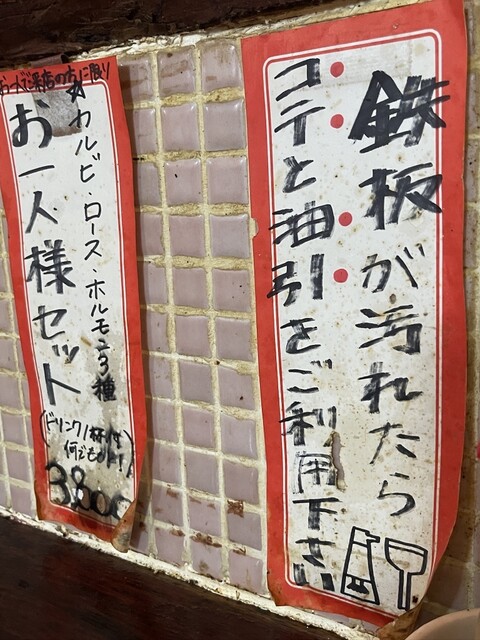 鉄板が汚れたら
コテと油引きをご利用下さい
お一人で来店の方に限り
カルビ・ロース・ホルモン3種
お一人様セット
(ドリンク1杯付
何でもOK!)
3,800